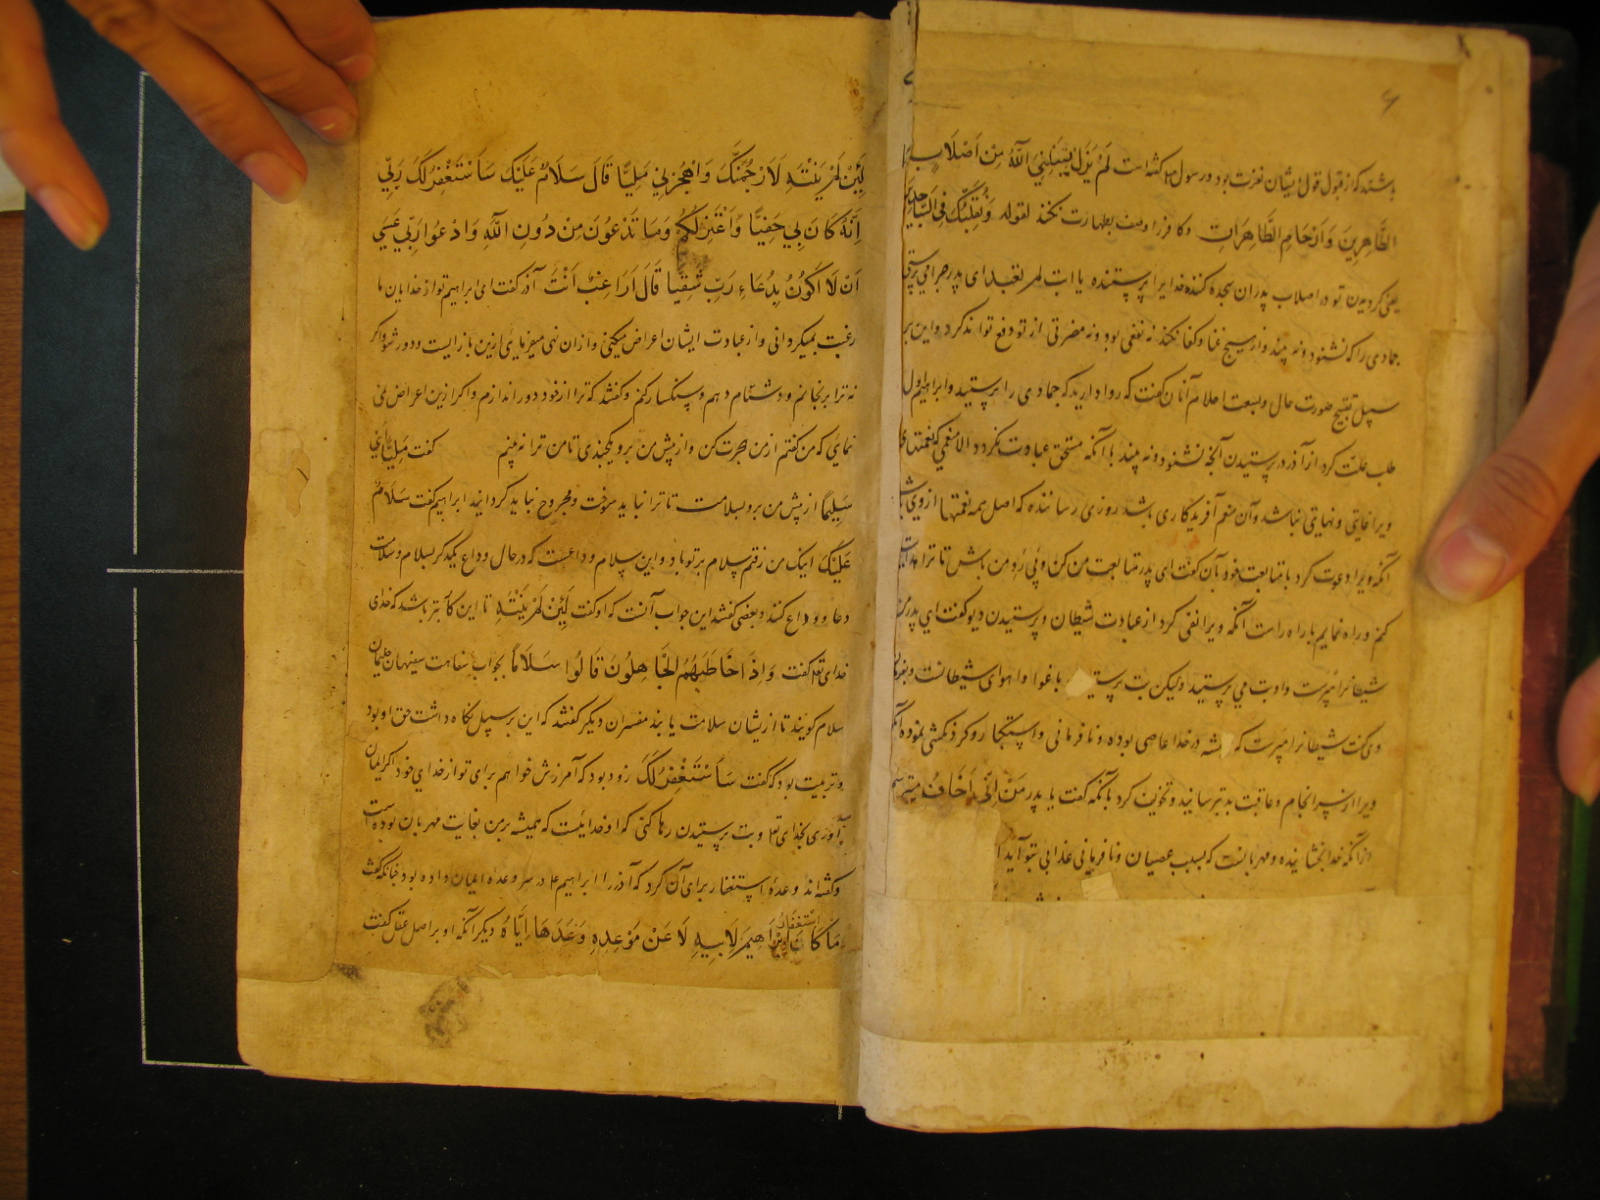 باشند که از قبول قول ایشان نفرت بود و رسول ع گفته است لَمْ یَزَلْ یَنْقُلُنِیَ اللّٰهُ مِنْ اَصْلَابِ
الطَّاهِرِینَ وَاَرْحَامِ الطَّاهِرَاتِ و کافر را وصف بطهارت نکنند لقوله وَتَقَلُّبَکَ فِی السَّاجِدِینَ
یعنی گردیدن تو در اصلاب پدران سجده کننده خدایرا پرستنده یا ابت لم تعبد ای پدر چرا می پرستی
جمادی را که نشنود و نه بیند و از هیچ غنا و کفا نکند نه نفعی بود و نه مضرتی از تو دفع تواند کرد و این بر
سبیل تقبیح صورت حال و نسبت احلام آنان گفت که روا دارید که جمادی را پرستید و ابراهیم اول
طلب علت کرد از آذر در پرستیدن آنچه نشنود و نه بیند با آنکه مستحق عبادت نگردد الا منعمی که نعمتهای
ویرا غایتی و نهایتی نباشد و آن منعم آفریدگاری باشد روزی رساننده که اصل همه نعمتها از وی
آنگه ویرا دعوت کرد با متابعت خود بآن گفت ای پدر متابعت من کن و پی رو من باش تا ترا هدایت
کنم و راه نمایم با راه راست آنگه ویرا نفی کرد از عبادت شیطان و پرستیدن دیو گفت ای پدر من
شیطانرا مپرست و او بت می پرستید ولیکن بت پرستی باغوا و اهوای شیطانست و بفرمان
وی گفت شیطانرا مپرست که در خدا عاصی بوده و نافرمانی و استکبار و گردنکشی نموده آنگه
ویرا از سرانجام و عاقبت بد بترسانید و تخویف کرد بآنکه گفت یا پدر من اِنِّی اَخَافُ میترسم
از آنکه خدا بخشاینده و مهربانست که بسبب عصیان و نافرمانی عذابی بتو آید
لَئِنْ لَمْ یَنْتَهِ لَاَرْجُمَنَّکَ وَاهْجُرْنِی مَلِیًّا قَالَ سَلَامٌ عَلَیْکَ سَاَسْتَغْفِرُ لَکَ رَبِّی
اِنَّهُ کَانَ بِی حَفِیًّا وَاَعْتَزِلُکُمْ وَمَا تَدْعُونَ مِنْ دُونِ اللّٰهِ وَاَدْعُوا رَبِّی عَسَی
اَنْ لَا اَکُونَ بِدُعَاءِ رَبِّ شَقِیًّا قَالَ اَرَاغِبٌ اَنْتَ آذر گفت ای ابراهیم تو از خدایان ما
رغبت بمیگردانی و از عبادت ایشان اعراض میکنی و از آن نهی میفرمایی ازین باز ایست و دور شو و اگر
نه ترا برنجانم و دشنام دهم و سنگسار کنم و گفتند که ترا از خود دور اندازم و اگر ازین اعراض نمی
نمایی که من گفتم از من هجرت کن و از پیش من برو بکجندی تا من ترا نه بینم گفت مَلِیًّا اَیْ
سَلِیمًا از پیش من برو بسلامت تا ترا نباید سوخت و مجروح نباید گردانید ابراهیم گفت سَلَامٌ
عَلَیْکَ اینک من رفتم سلام بر تو باد و این سلام وداعست که در حال وداع یکدیگر بسلام و سلامت
دعا و وداع کنند و بعضی گفتند این جواب آنست که او گفت لَئِنْ لَمْ یَنْتَهِ تا این کلام بتر باشد که خدای
خدای تعالی گفت وَاِذَا خَاطَبَهُمُ الْجَاهِلُونَ قَالُوا سَلَامًا بجواب سفاهت سفیهان حلیمان
سلام گویند تا از یشان سلامت یابند مفسران دیگر گفتند که این بر سبیل نگاه داشت حق ابوت
و تربیت بود که گفت سَاَسْتَغْفِرُ لَکَ زود بود که آمرزش خواهم برای تو از خدای خود اگر ایمان
آوری بخدای تعالی و بت پرستیدن رها کنی که او خدائیست که همیشه بر من بغایت مهربان بوده است
و گفته اند وعده استغفار برای آن کرد که آذر را ابراهیم ع در سر وعده ایمان داده بود چنانکه گفت
مَا کَانَ اسْتِغْفَارُ اِبْرَاهِیمَ لِاَبِیهِ لَا عَنْ مَوْعِدَةٍ وَعَدَهَا اِیَّاهُ دیگر آنکه او بر اصل عقل گفت